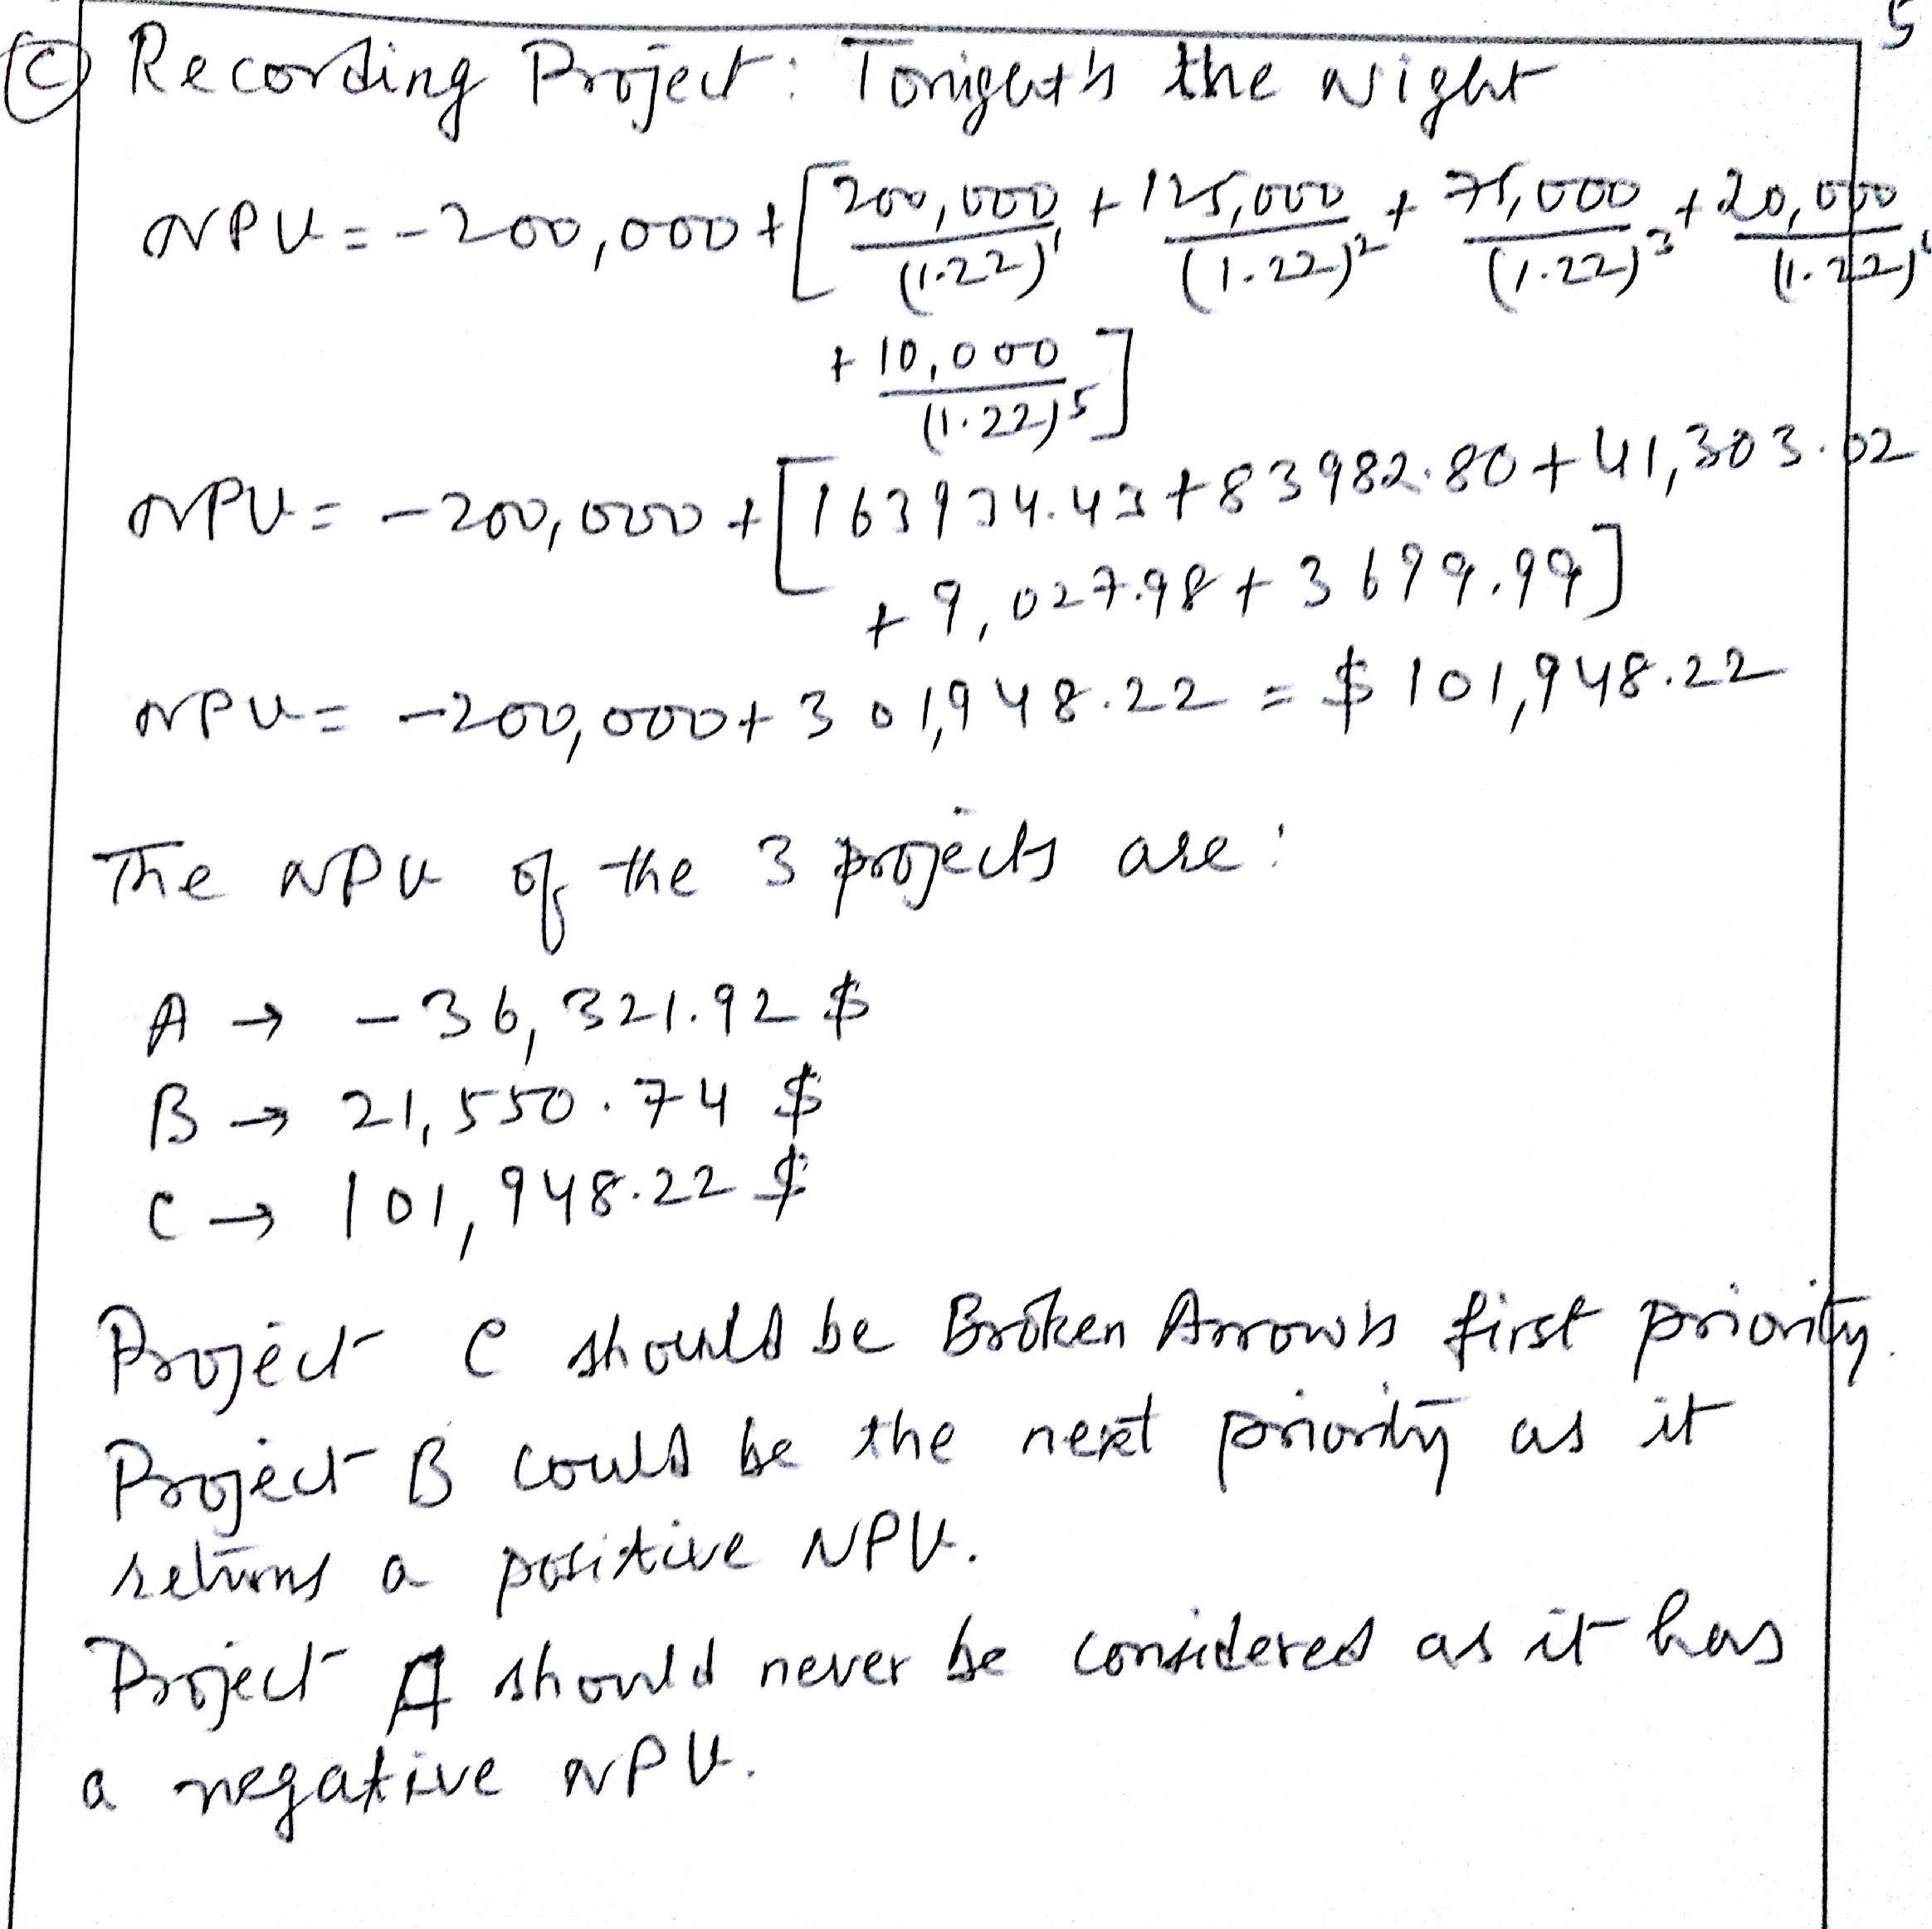 5
(C) Recording Project: Tonight's the Night
NPV = -200,000 + [200,000/(1.22)^1 + 125,000/(1.22)^2 + 75,000/(1.22)^3 + 20,000/(1.22)^4
+ 10,000/(1.22)^5]
NPV = -200,000 + [163934.43 + 83982.80 + 41,303.02
+ 9,027.98 + 3699.99]
NPV = -200,000 + 301,948.22 = $101,948.22
The NPV of the 3 projects are:
A → -36,321.92 $
B → 21,550.74 $
C → 101,948.22 $
Project C should be Broken Arrow's first priority.
Project B could be the next priority as it
returns a positive NPV.
Project A should never be considered as it has
a negative NPV.